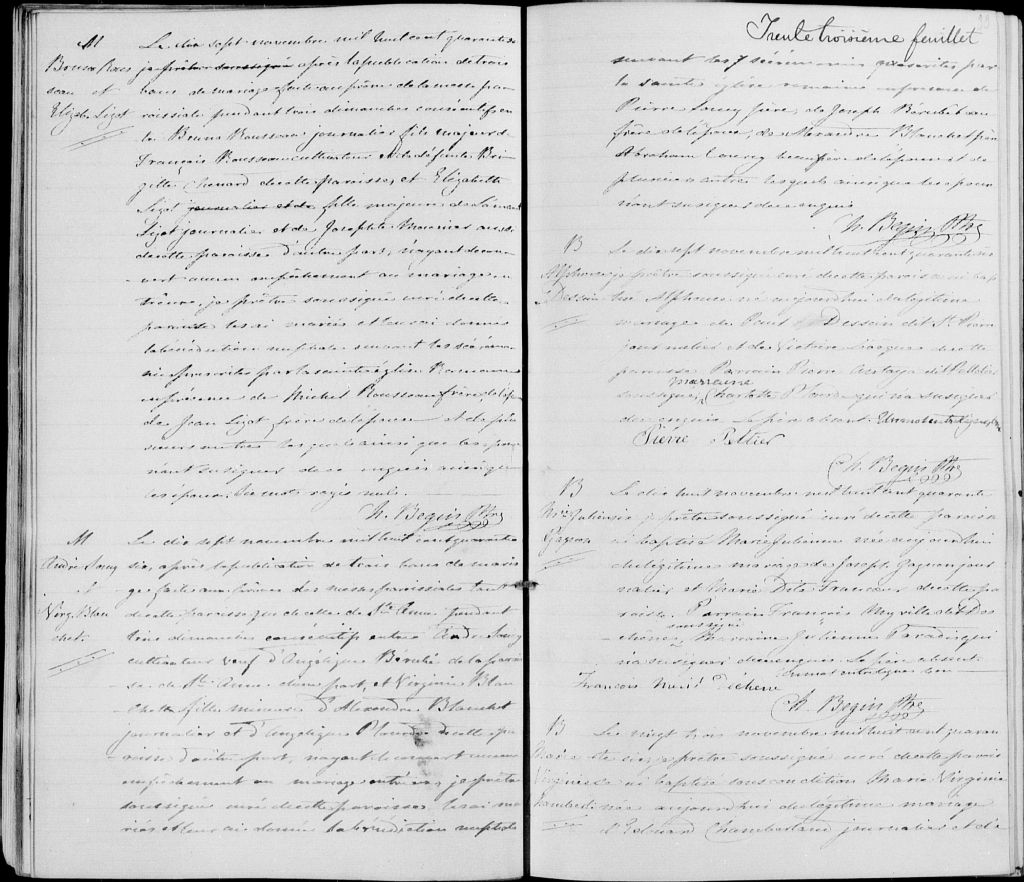 M
Bruno Rous
seau et
Elizabe Lizot
Le dix sept novembre mil huit cent quarante six
je prêtre soussigné après la publication de trois
bans de mariage faite au prône de la messe pa
roissiale pendant trois dimanches consécutifs en
tre Bruno Rousseau journalier fils majeur de
François Rousseau cultivateur et de défunte Bri
gitte Chenard de cette paroisse, et Elizabeth
Lizot journalier et de fille majeure de
Lizot journalier et de Josephte aussi
de cette paroisse d'autre part, n'ayant decou
vert aucun empêchement au mariage en
trêvue, je prêtre soussigné curé de cette
paroisse les ai mariés et leur ai donné
la bénédiction nuptiale suivant les cérémo
nies prescrites par la sainte église Romaine
en présence de Michel Rousseau frère de l'époux
de Jean Lizot frère de l'épouse et de plu
sieurs autres lesquels ainsi que les
n'ont su signer de ce enquis ainsi que
les époux. Six mots rayés nuls.
N. Begin Ptre
M
André Soucy
&
Virg. Blan
chet
Le dix sept novembre mil huit cent quarante
six, après la publication de trois bans de maria
ge faite aux prônes des messes paroissiales tant
de cette paroisse que de celle de Ste Anne pendant
trois dimanches consécutifs entre André Soucy
cultivateur veuf d'Angélique Bérubé de la parois
se de Ste Anne d'une part, et Virginie Blan
chette fille mineure d'Alexandre Blanchet
journalier et d'Angélique Plourde de cette pa
roisse d'autre part, n'ayant decouvert aucun
empêchement au mariage entrêvu, je prêtre
soussigné curé de cette paroisse les ai ma
riés et leur ai donné la bénédiction nuptiale
Trente troisième feuillet
suivant les cérémonies prescrites par
la sainte église romaine en présence de
Pierre Soucy père, de Joseph Bérubé beau
frère de l'époux, de Alexandre Blanchet père
Abraham beau frère de l'épouse et de
plusieurs autres lesquels ainsi que les époux
n'ont su signer de ce enquis
N. Begin Ptre
B
Alphonse
Dessein
Le dix sept novembre mil huit cent quarante six
je prêtre soussigné curé de cette paroisse ai bap
tisé Alphonse né aujourd'hui du légitime
mariage de Paul Dessein dit St Pierre
journalier et de Victoire de cette
paroisse Parrain Pierre dit Pelletier
marraine
soussigné, Charlotte Plourde qui n'a su signer
de ce enquis. Le père absent.
Pierre Peltier
N. Begin Ptre
B
Mie Julienne
Gagnon
Le dix huit novembre mil huit cent quarante
six je prêtre soussigné curé de cette paroisse
ai baptisé Marie Julienne née aujourd'hui
du légitime mariage de Joseph Gagnon jour
nalier et Marie de cette pa
roisse Parrain François Miville dit Des
soussigné
chênes, Marraine Julienne Paradis qui
n'a su signer de ce enquis. Le père absent.
François Mivil Dechene
N. Begin Ptre
B
Marie
Virginie
Chamberl
Le vingt trois novembre mil huit cent quaran
te six je prêtre soussigné curé de cette parois
se ai baptisé sous condition Marie Virginie
née aujourd'hui du légitime mariage
d'Edouard Chamberland journalier et de